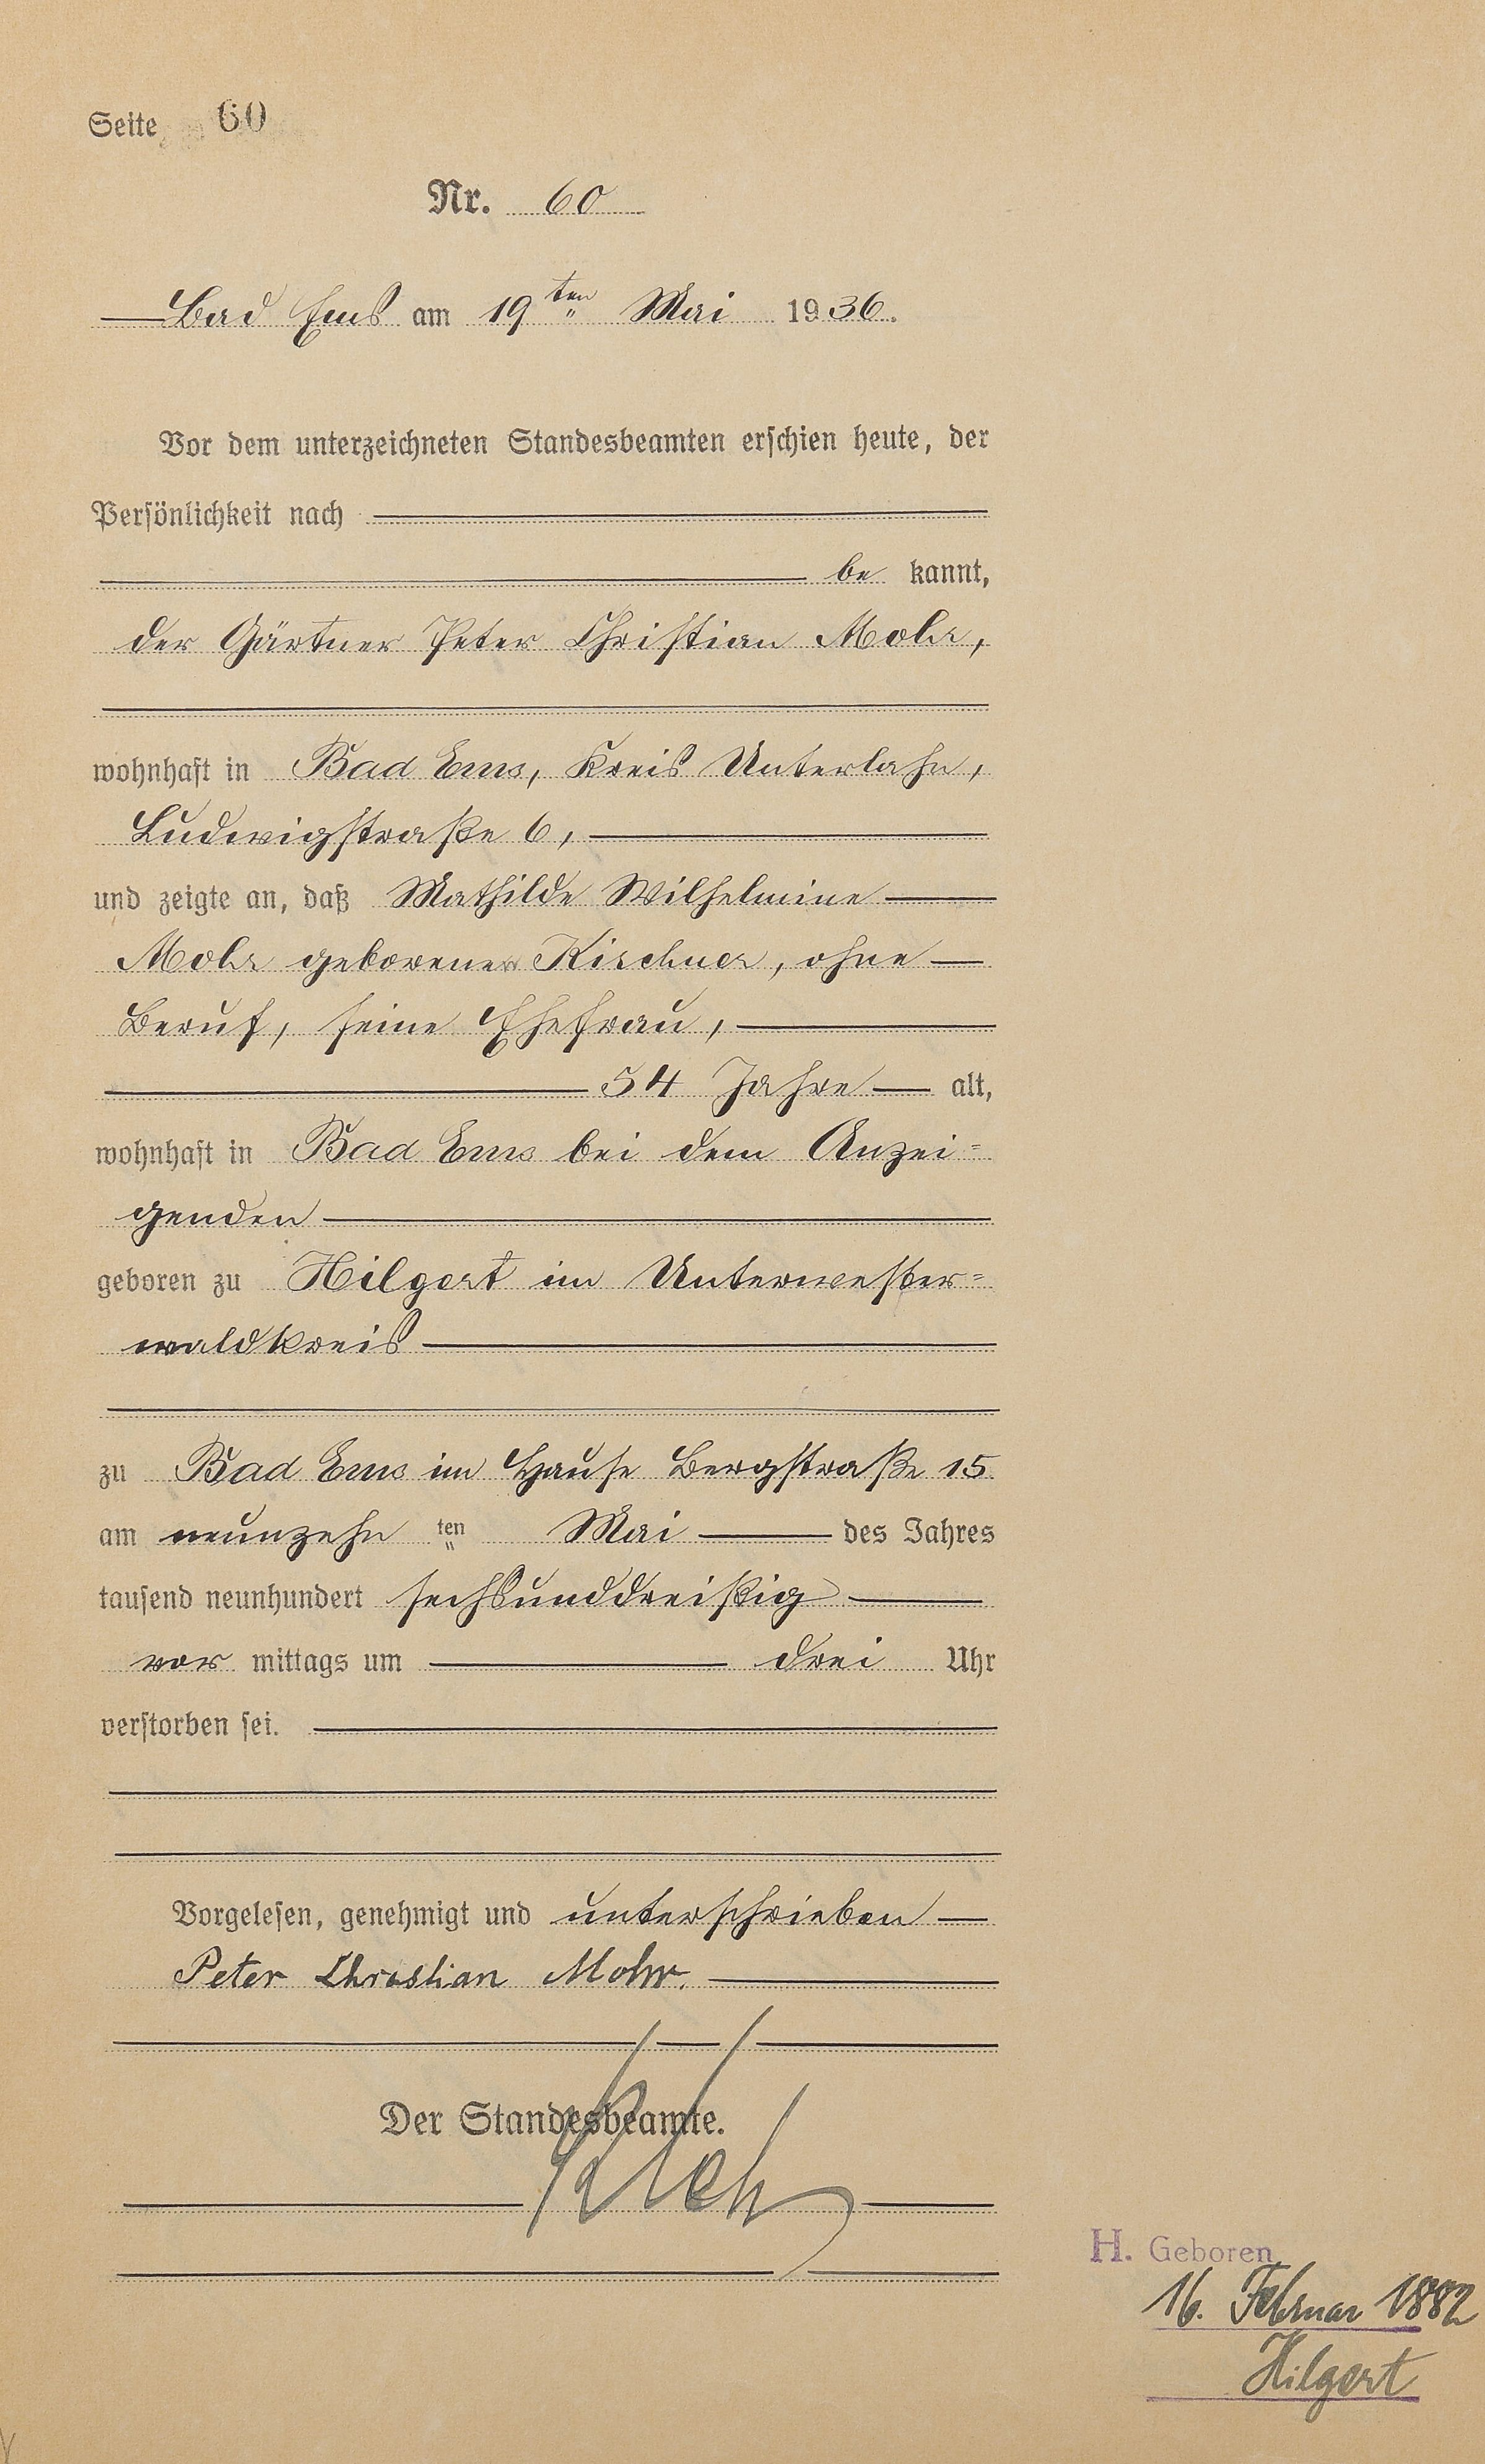 Seite 60
Nr. 60
Bad Ems am 19ten Mai 1936.
Vor dem unterzeichneten Standesbeamten erschien heute, der
Persönlichkeit nach
be kannt,
der Gärtner Peter Christian Mohr,
wohnhaft in Bad Ems, Kreis Unterlahn,
Ludwigstraße 6,
und zeigte an, daß Mathilde Wilhelmine
Mohr geborener Kirchner, ohne
Beruf, seine Ehefrau,
54 Jahre alt,
wohnhaft in Bad Ems bei dem Anzei=
genden
geboren zu Hilgert im Unterwester=
waldkreis
zu Bad Ems im Hause Bergstraße 15
am neunzehn ten Mai des Jahres
tausend neunhundert sechsunddreißig
vor mittags um drei Uhr
verstorben sei.
Vorgelesen, genehmigt und unterschrieben
Peter Christian Mohr.
Der Standesbeamte.
H. Geboren
16. Februar 1882
Hilgert